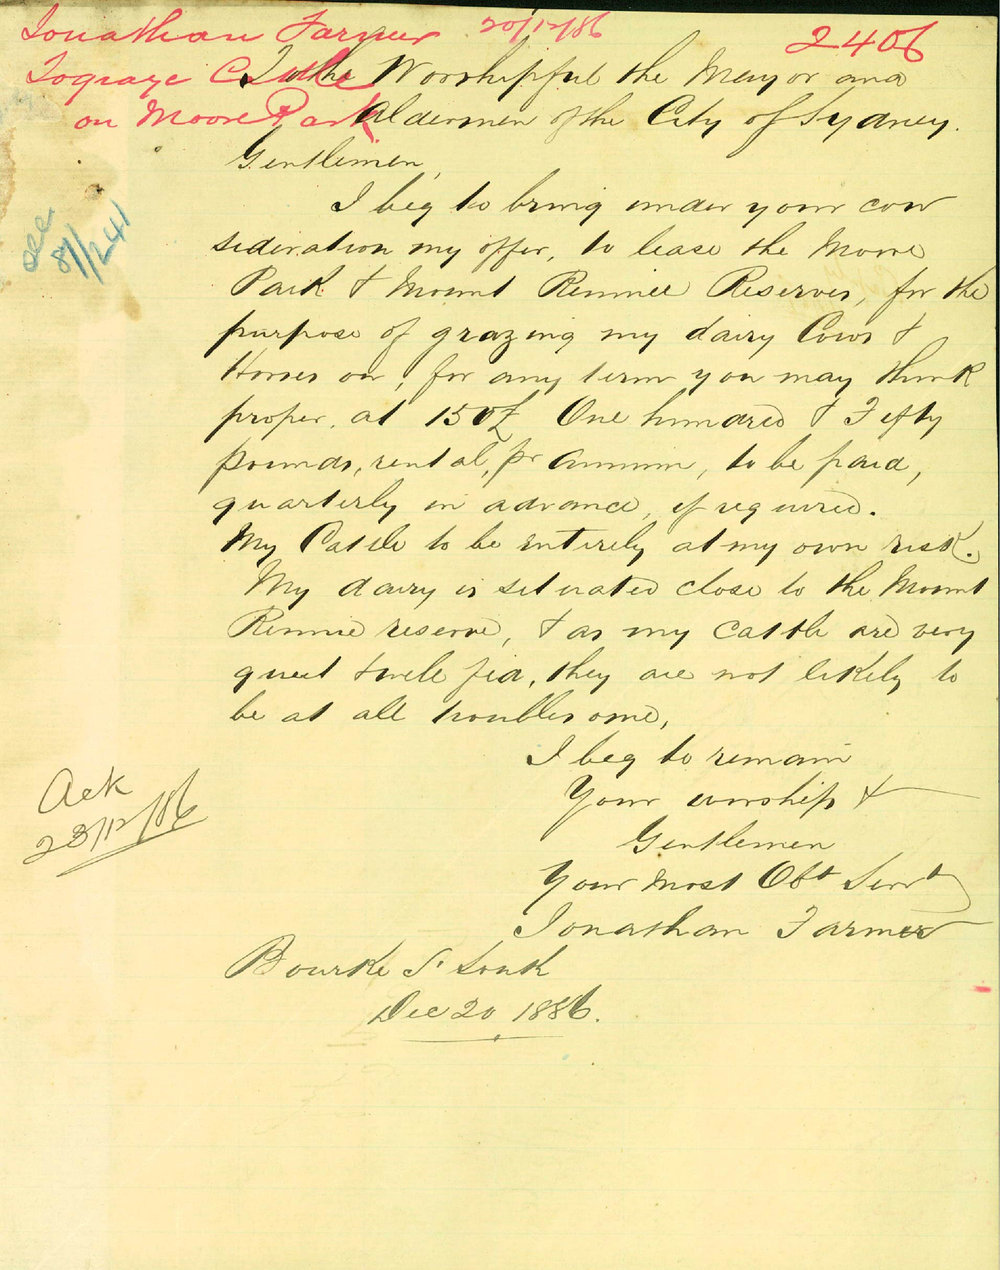 Jonathan Farmer
20/12/86
2406
To graze Cattle
on Moore Park
To the Worshipful the Mayor and
Aldermen of the City of Sydney.
Gentlemen,
I beg to bring under your con
sideration my offer, to lease the Moore
Park & Mount Rennie Reserves, for the
purpose of grazing my dairy Cows &
Horses on, for any term you may think
proper, at 150£ One hundred & Fifty
pounds, rental, pr Annum, to be paid,
quarterly in advance, if required.
My Cattle to be entirely at my own risk.
My dairy is situated close to the Mount
Rennie reserve, & as my cattle are very
quiet & well fed, they are not likely to
be at all troublesome,
I beg to remain
Your worship &
Gentlemen
Your most Obt Servt
Jonathan Farmer
Bourke St South
Dec 20 1886.
See
87/241
Ack
23/12/86